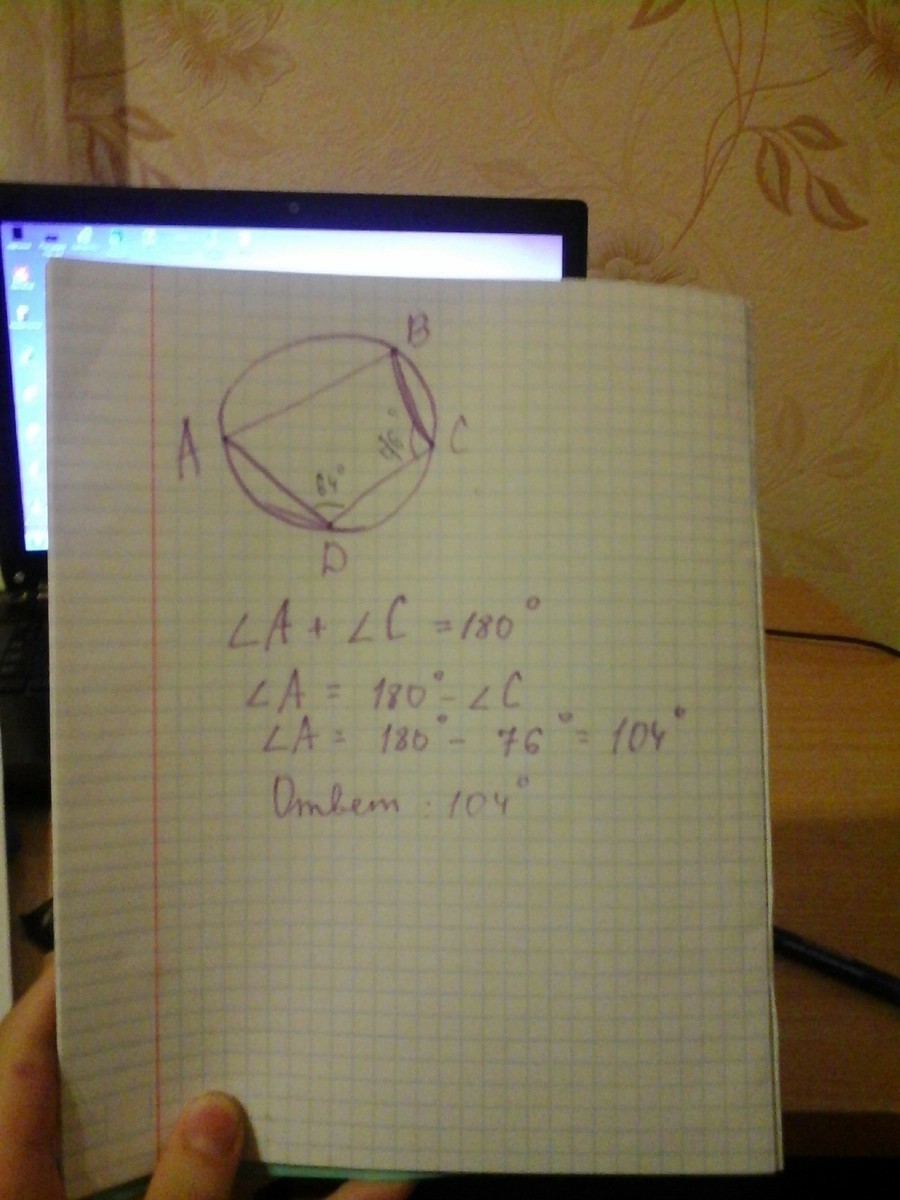 B
A
C
76°
64°
D
∠A + ∠C = 180°
∠A = 180° - ∠C
∠A = 180° - 76° = 104°
Ответ: 104°